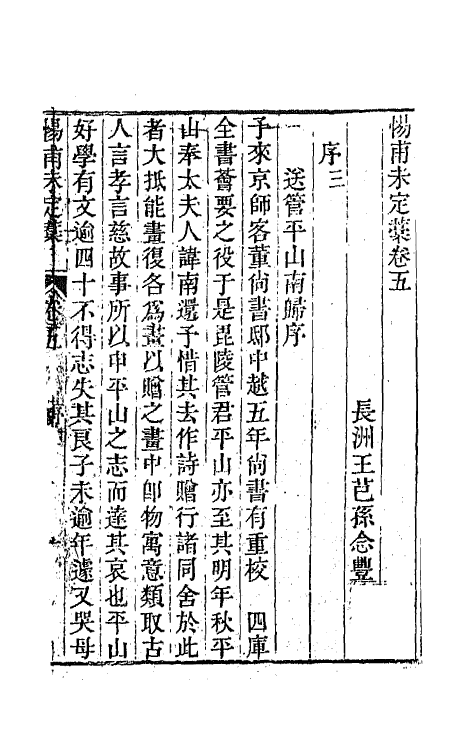 惕甫未定藁卷五
長洲王芑孫念豐
序三
送管平山南歸序
予來京師客董尙書邸中越五年尙書有重校　四庫
全書薈要之役于是毘陵管君平山亦至其明年秋平
山奉太夫人諱南還予惜其去作詩贈行諸同舍於此
者大抵能畫復各爲畫以贈之畫中卽物寓意類取古
人言孝言慈故事所以申平山之志而達其哀也平山
好學有文逾四十不得志失其良子未逾年遽又哭母
惕甫未定藁
卷五